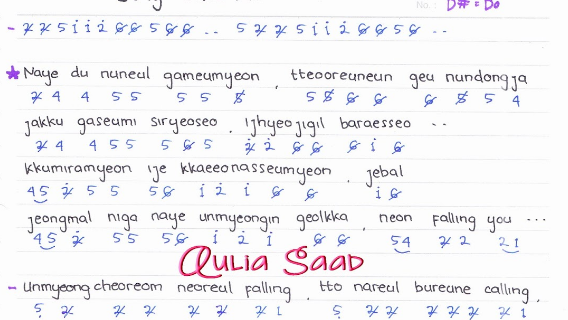 No.: D# = Do
- 7 7 5 i i 2 6 6 5 6 6 .. 5 7 7 5 i i 2 6 6 5 6 ..
★ Naye du nuneul gameumyeon , tteooreuneun geu nundongja
7 4 4 5 5 5 5 5 5 5 6 6 6 5 5 4
jakku gaseumi siryeoseo , ijhyeojigil baraesseo ..
7 4 4 5 5 5 6 5 2 2 6 6 6 i 6
kkumiramyeon ije kkaeeonasseumyeon , jebal
4 5 2 5 5 5 6 i 2 i 6 6 i 6
jeongmal niga naye unmyeongin geolkka , neon falling you ...
4 5 2 5 5 5 6 i 2 i 6 6 5 4 7 2 2 1
Qulia Saad
- Unmyeong cheoreom neoreul falling , tto nareul bureune calling ,
5 7 7 7 7 7 7 1 5 7 7 7 7 7 7 1